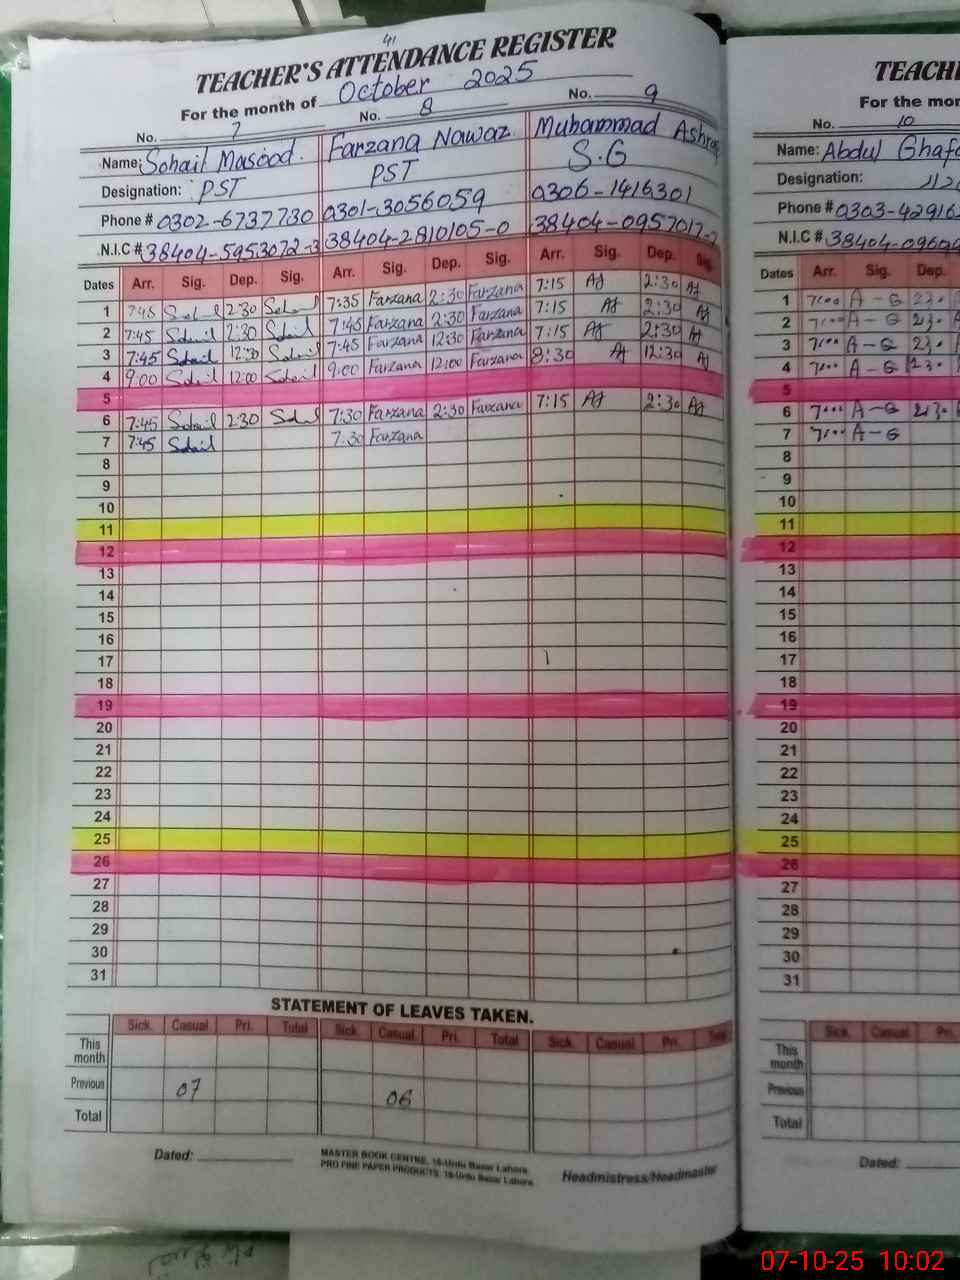 41
TEACHER'S ATTENDANCE REGISTER
For the month of October 2025
No. 7 No. 8 No. 9
Name: Sohail Masood. Farzana Nawaz Muhammad Ashraf
Designation: PST PST S.G
Phone # 0302-6737730 0301-3056059 0306-1416301
N.I.C # 38404-5953072-3 38404-2810105-0 38404-0957017-7
Dates Arr. Sig. Dep. Sig. Arr. Sig. Dep. Sig. Arr. Sig. Dep. Sig.
1 7:45 Sohail 2:30 Sohail 7:35 Farzana 2:30 Farzana 7:15 AJ 2:30 AJ
2 7:45 Sohail 2:30 Sohail 7:45 Farzana 2:30 Farzana 7:15 AJ 2:30 AJ
3 7:45 Sohail 12:30 Sohail 7:45 Farzana 12:30 Farzana 7:15 AJ 2:30 AJ
4 9:00 Sohail 12:00 Sohail 9:00 Farzana 12:00 Farzana 8:30 AJ 12:30 AJ
5
6 7:45 Sohail 2:30 Sohail 7:30 Farzana 2:30 Farzana 7:15 AJ 2:30 AJ
7 7:45 Sohail 7:30 Farzana
8
9
10
11
12
13
14
15
16
17
18
19
20
21
22
23
24
25
26
27
28
29
30
31
STATEMENT OF LEAVES TAKEN.
Sick. Casual Pri. Total Sick. Casual Pri. Total Sick. Casual Pri. Total
This month
Previous 07 06
Total
Dated:
MASTER BOOK CENTRE, 16-Urdu Bazar Lahore.
PRO FINE PAPER PRODUCTS, 16-Urdu Bazar Lahore.
Headmistress/Headmaster
TEACH
For the mon
No. 10
Name: Abdul Ghafo
Designation:
Phone # 0303-42916
N.I.C # 38404-0960
Dates Arr. Sig. Dep.
1 7:00 A-G 2:30
2 7:00 A-G 2:30
3 7:00 A-G 2:30
4 7:00 A-G 12:30
5
6 7:00 A-G 2:30
7 7:00 A-G
8
9
10
11
12
13
14
15
16
17
18
19
20
21
22
23
24
25
26
27
28
29
30
31
Sick. Casual Pri.
This month
Previous
Total
Dated:
07-10-25 10:02